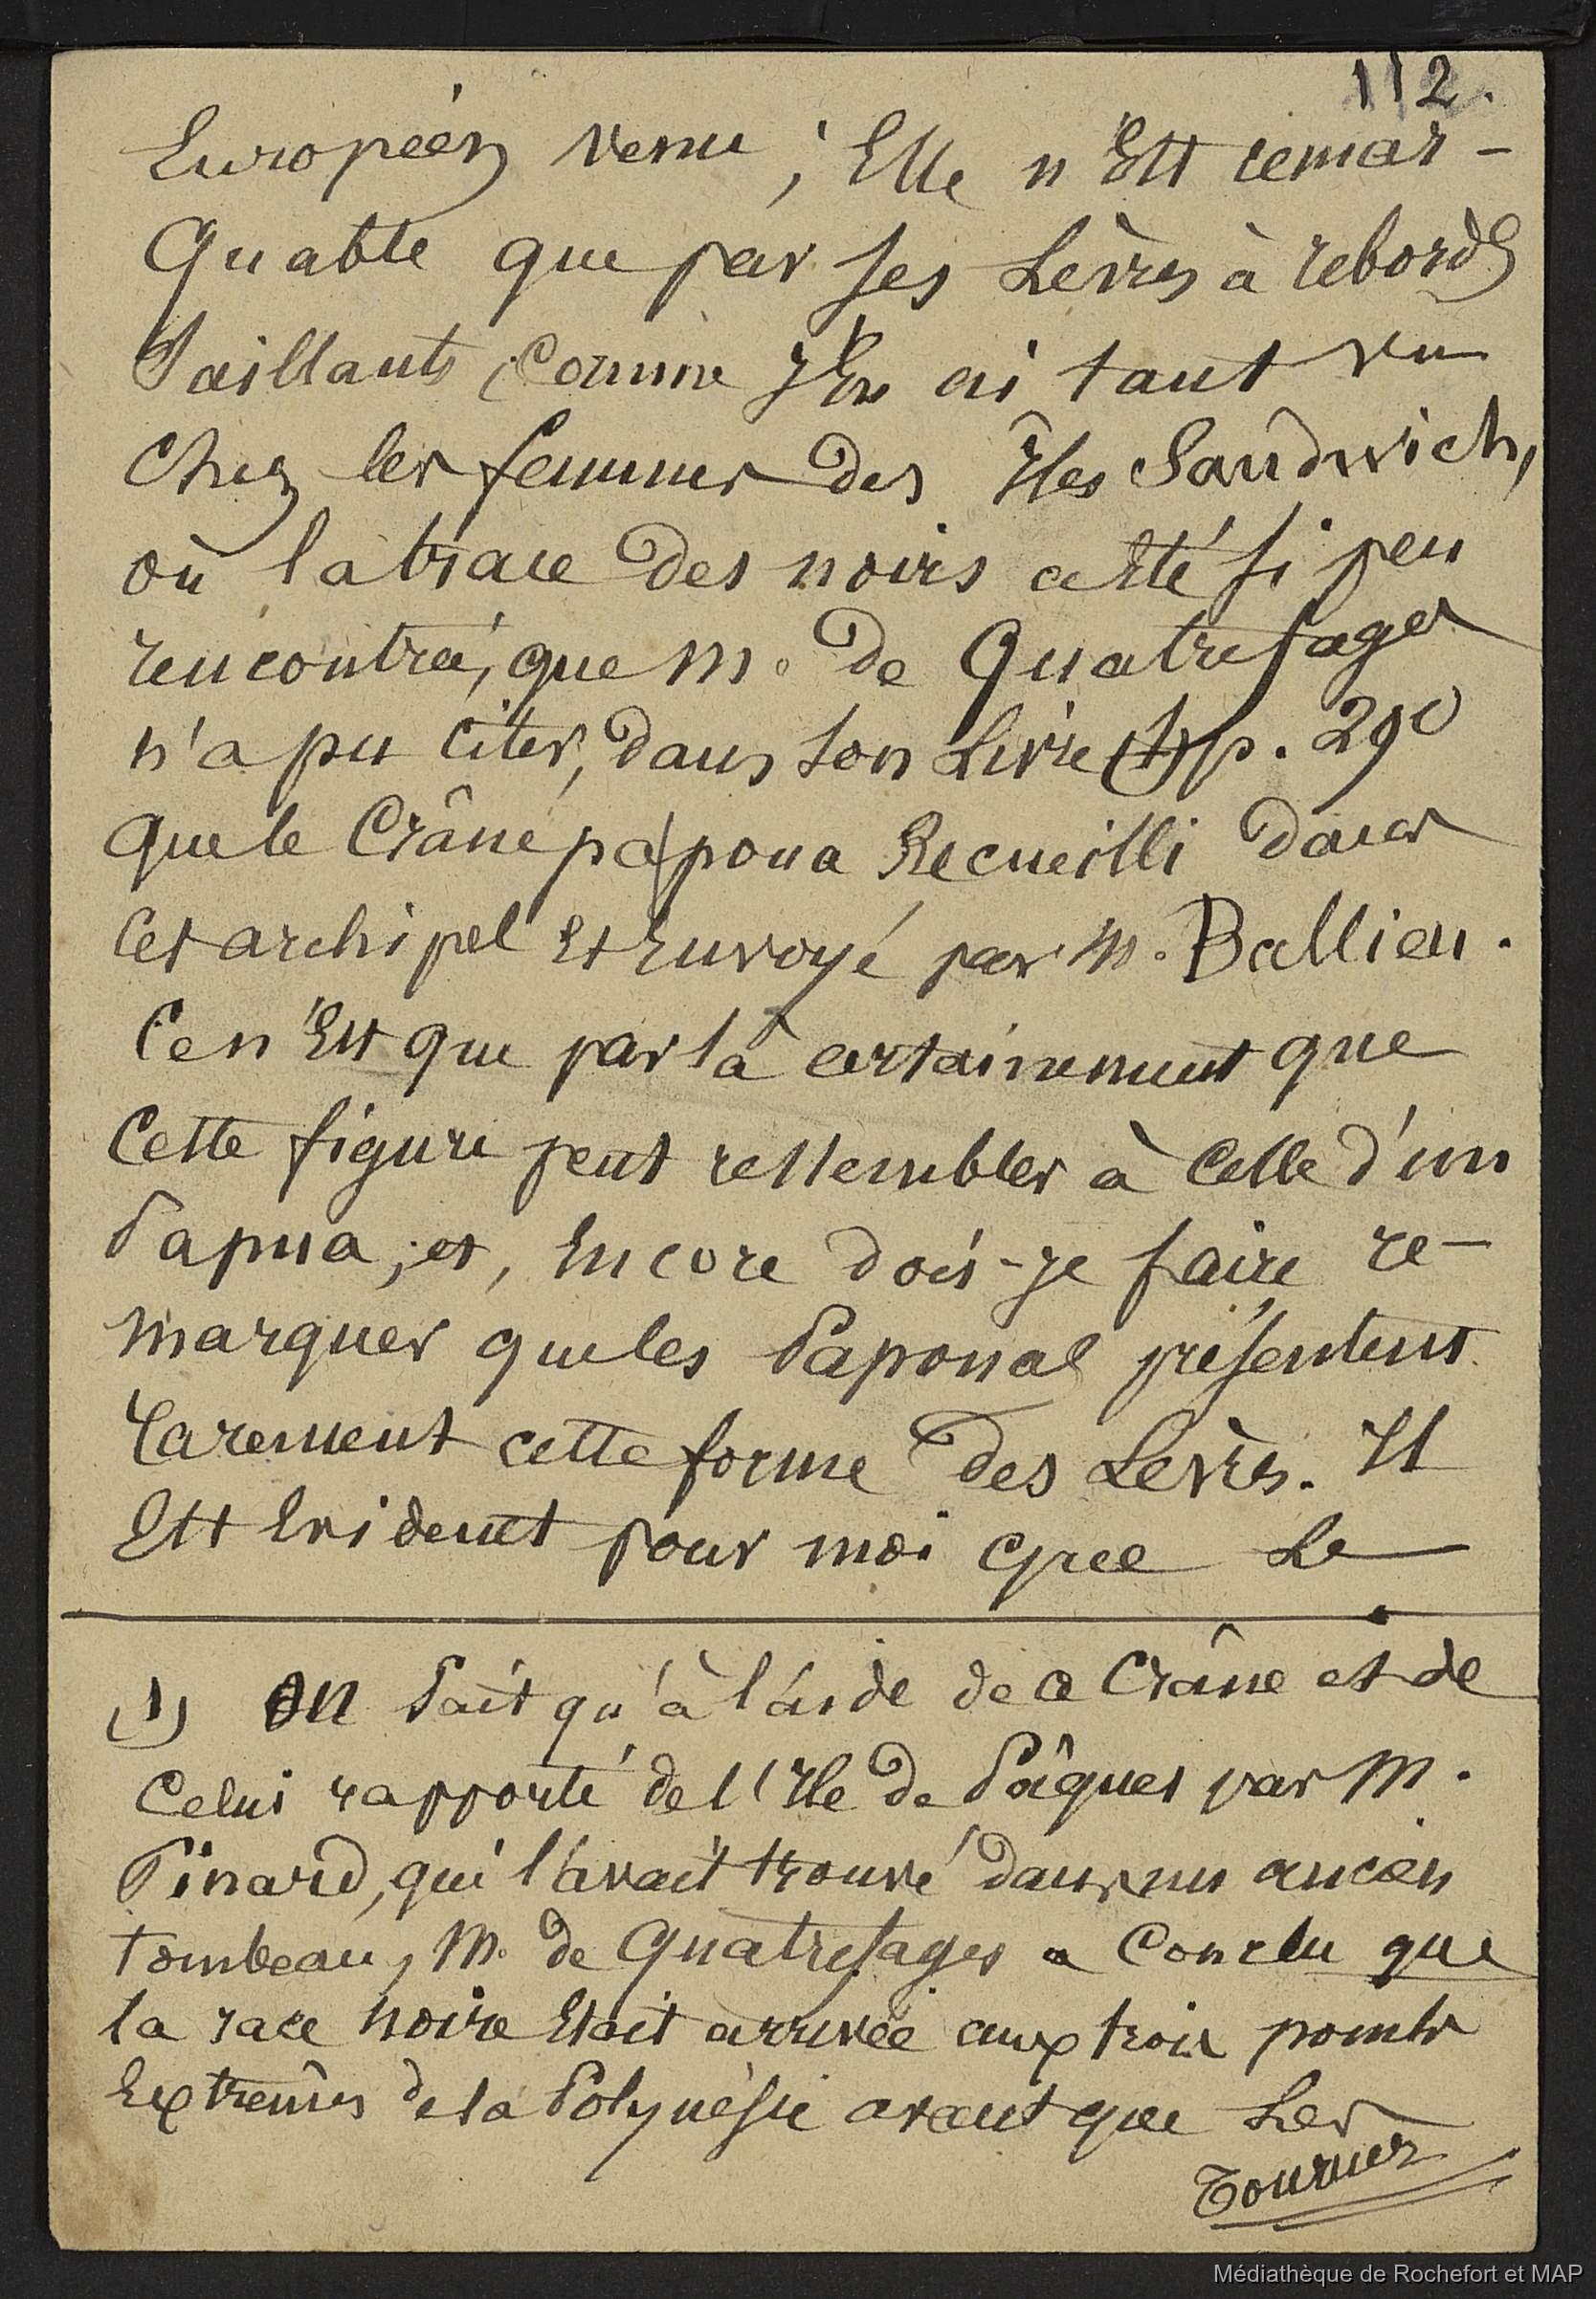 112.
Européen venu ; Elle n'Est remar-
Quable que par ses Lèvres à rebords
Saillants, Comme J'En ai tant vu
Chez les femmes des Îles Sandwich,
où la trace des noirs a Été si peu
rencontrée, que M. de Quatrefages
n'a pu Citer, dans son Livre (1) p. 290
que le Crâne papoua Recueilli dans
Cet archipel Et Envoyé par M. Ballieu.
Ce n'Est que par là certainement que
Cette figure peut ressembler à Celle d'un
Papua ; et, Encore dois-je faire re-
marquer que les Papouas présentent
rarement cette forme des Lèvres. Il
Est Evident pour moi que Le
(1) On Sait qu'à l'aide de ce Crâne et de
Celui rapporté de l'Ile de Pâques par M.
Pinard, qui l'avait trouvé dans un ancien
tombeau, M. de Quatrefages a Conclu que
la race noire Etait arrivée aux trois points
Extrêmes de la Polynésie avant que Les
Tournez
Médiathèque de Rochefort et MAP